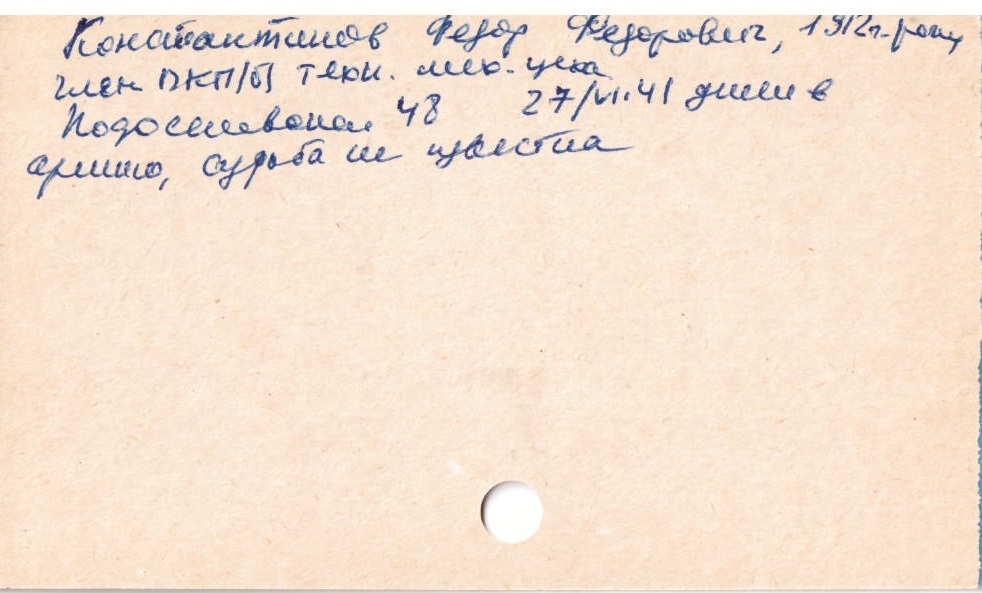 Константинов Федор Федорович, 1912г. рожд
член ВКП/б/ техн. мех. цеха
Подосеновская 48 27/VI.41 ушел в
армию, судьба не известна